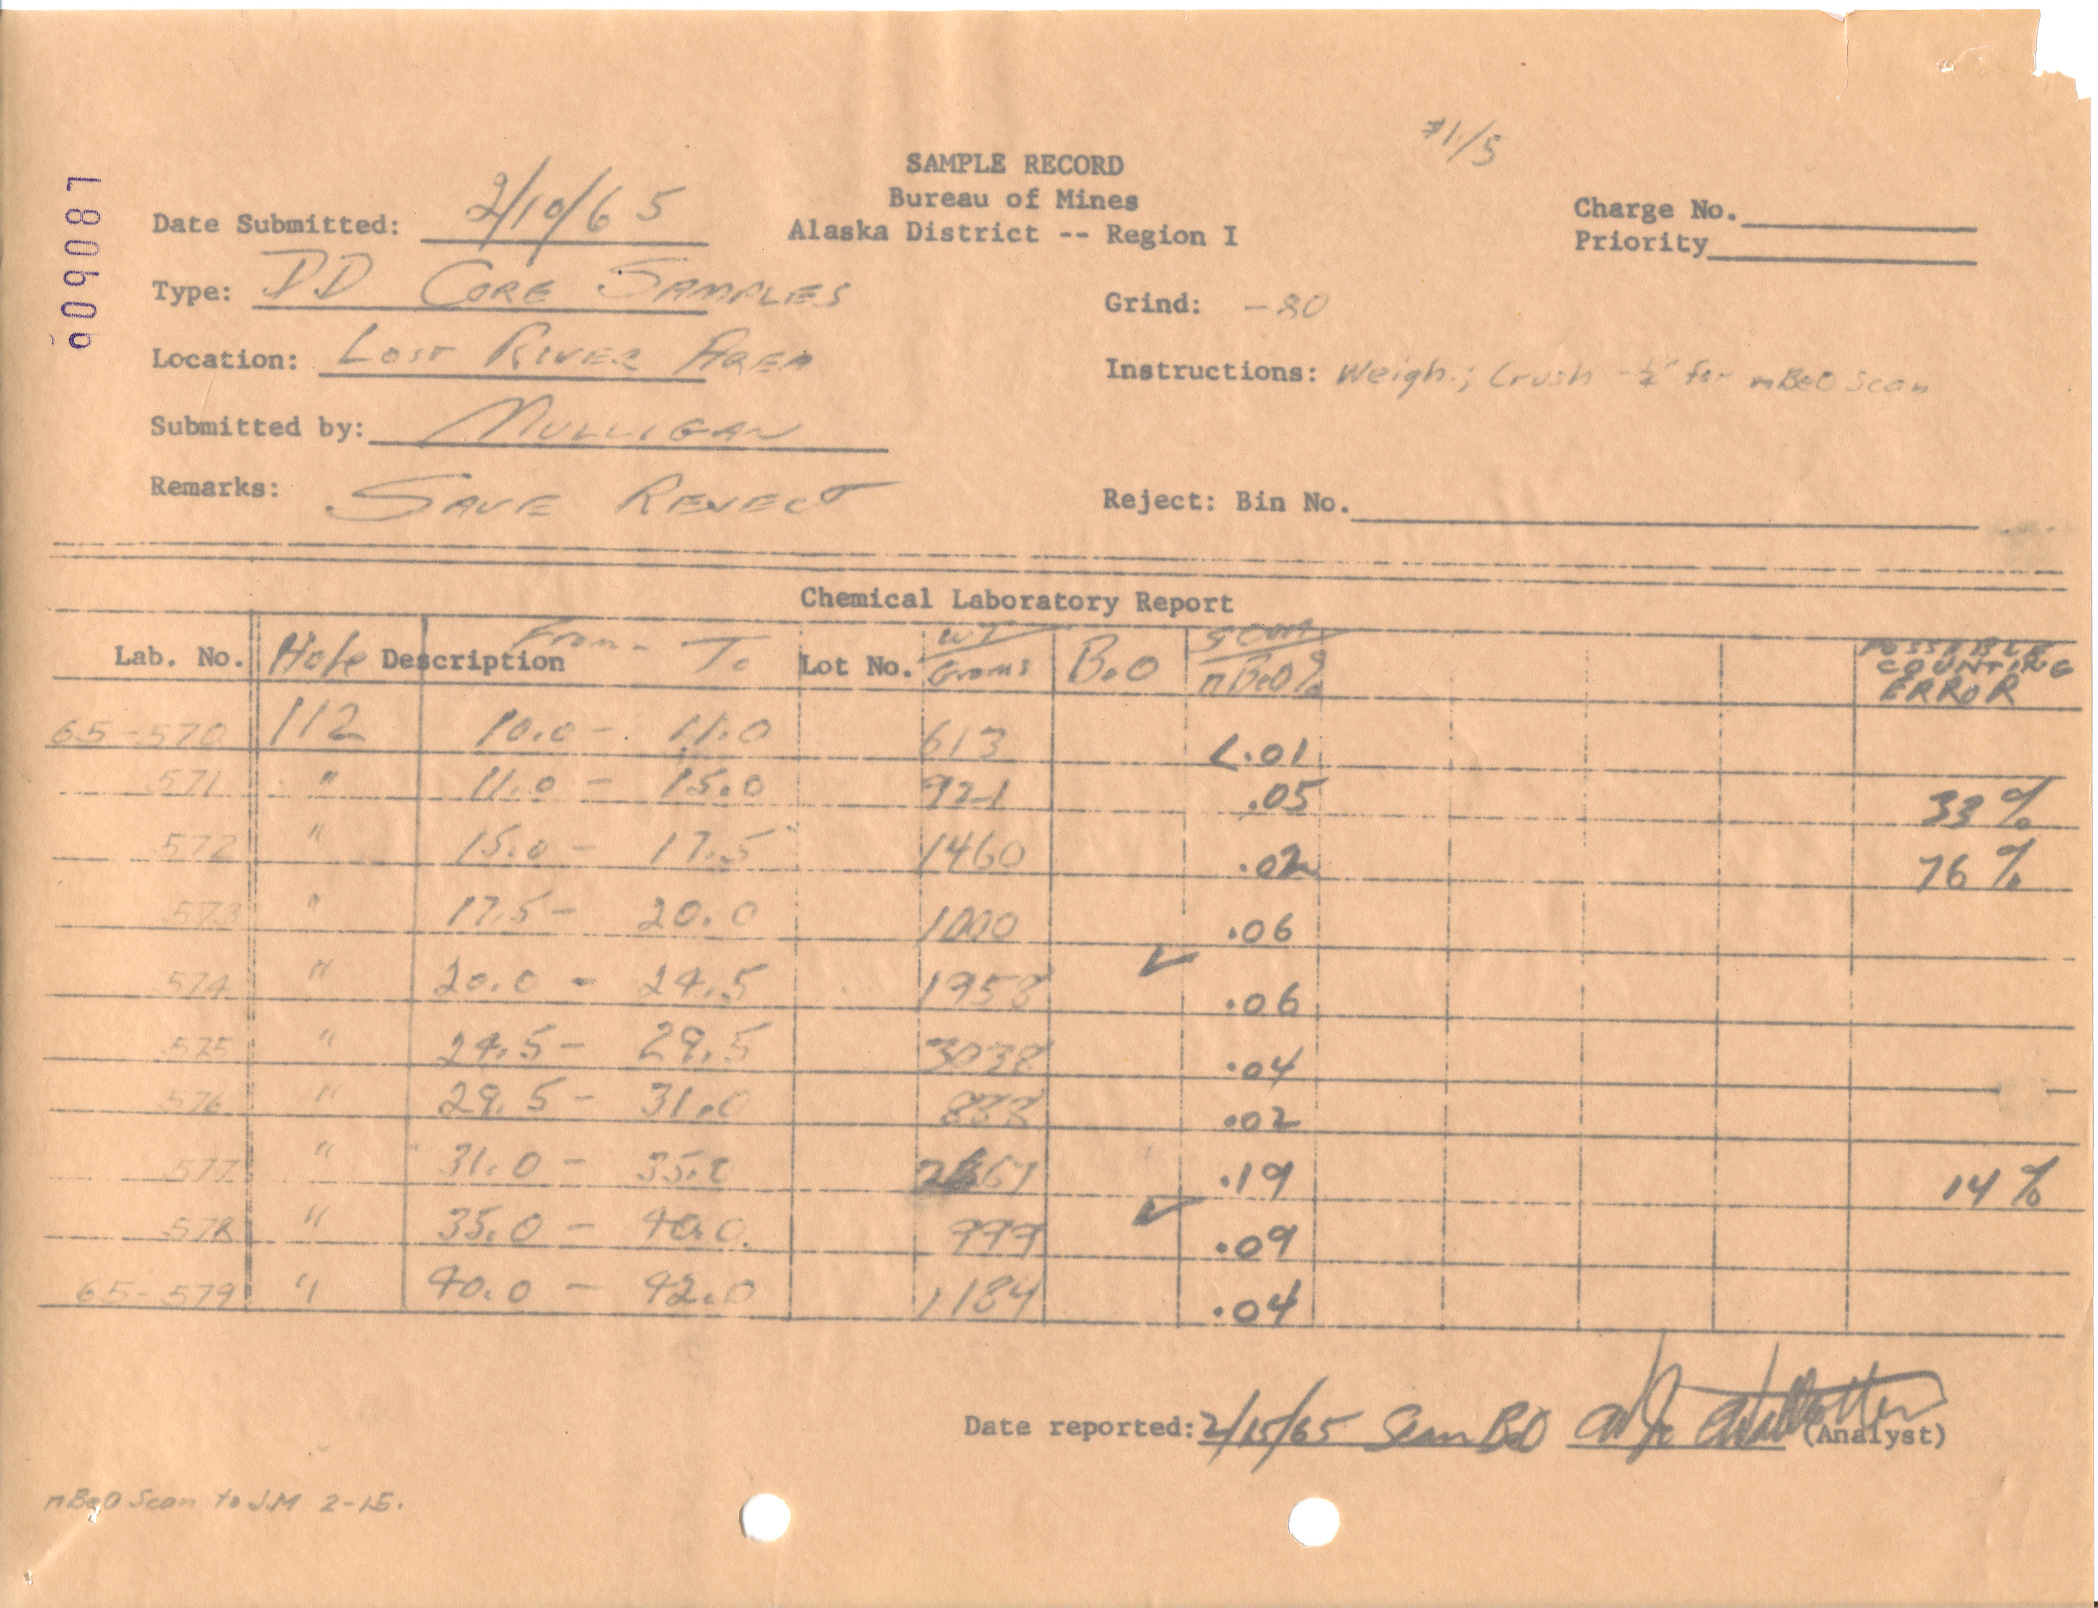 #1/5
SAMPLE RECORD
Bureau of Mines
Alaska District -- Region I
L80606
Date Submitted: 2/10/65
Charge No.
Priority
Type: DD CORE SAMPLES
Grind: -80
Location: LOST RIVER AREA
Instructions: Weigh; Crush -½" for nBeO scan
Submitted by: MULLIGAN
Remarks: SAVE REJECT
Reject: Bin No.
Chemical Laboratory Report
Lab. No. Hole Description From - To Lot No. WT Grams BeO SCAN nBeO% POSSABLE COUNTING ERROR
65-570 112 10.0 - 11.0 613 <.01
571 " 11.0 - 15.0 921 .05 33%
572 " 15.0 - 17.5 1460 .02 76%
573 " 17.5 - 20.0 1000 .06
574 " 20.0 - 24.5 1958 ✓ .06
575 " 24.5 - 29.5 3038 .04
576 " 29.5 - 31.0 888 .02
577 " 31.0 - 35.0 .19 14%
578 " 35.0 - 40.0 999 ✓ .09
65-579 " 40.0 - 42.0 1184 .04
Date reported: 2/15/65 Scan BeO (Analyst)
nBeO Scan to J.M 2-15.